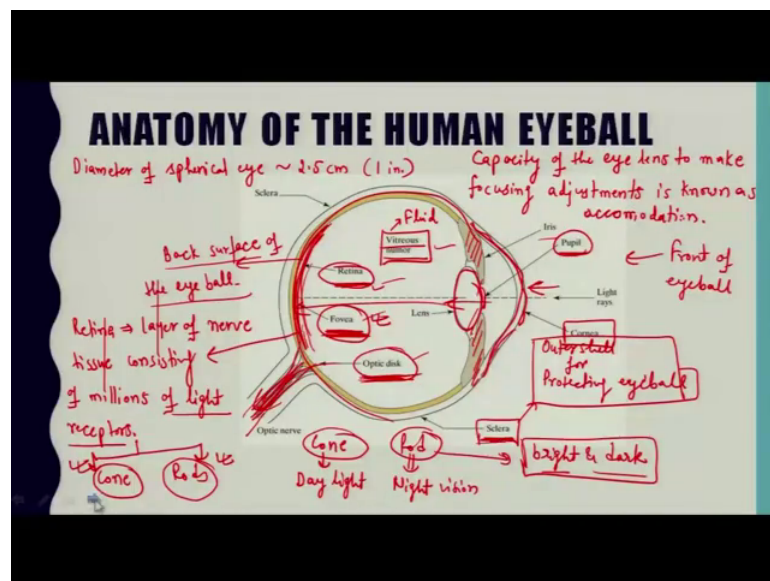 ANATOMY OF THE HUMAN EYEBALL
Diameter of spherical eye ~ 2.5 cm (1 in.)
Capacity of the eye lens to make
focusing adjustments is known as
accomodation.
Sclera
Fluid
Vitreous
humor
Iris
Pupil
Back surface of
the eye ball.
Retina
← Front of
eyeball
Fovea
Lens
Light
rays
Retina ⇒ layer of nerve
tissue consisting
of millions of light
receptors.
Optic disk
Cornea
Outer shell
for
Protecting eyeball
Optic nerve
Sclera
Cone
Rod
bright & dark
Cone
Rods
Day light
Night vision